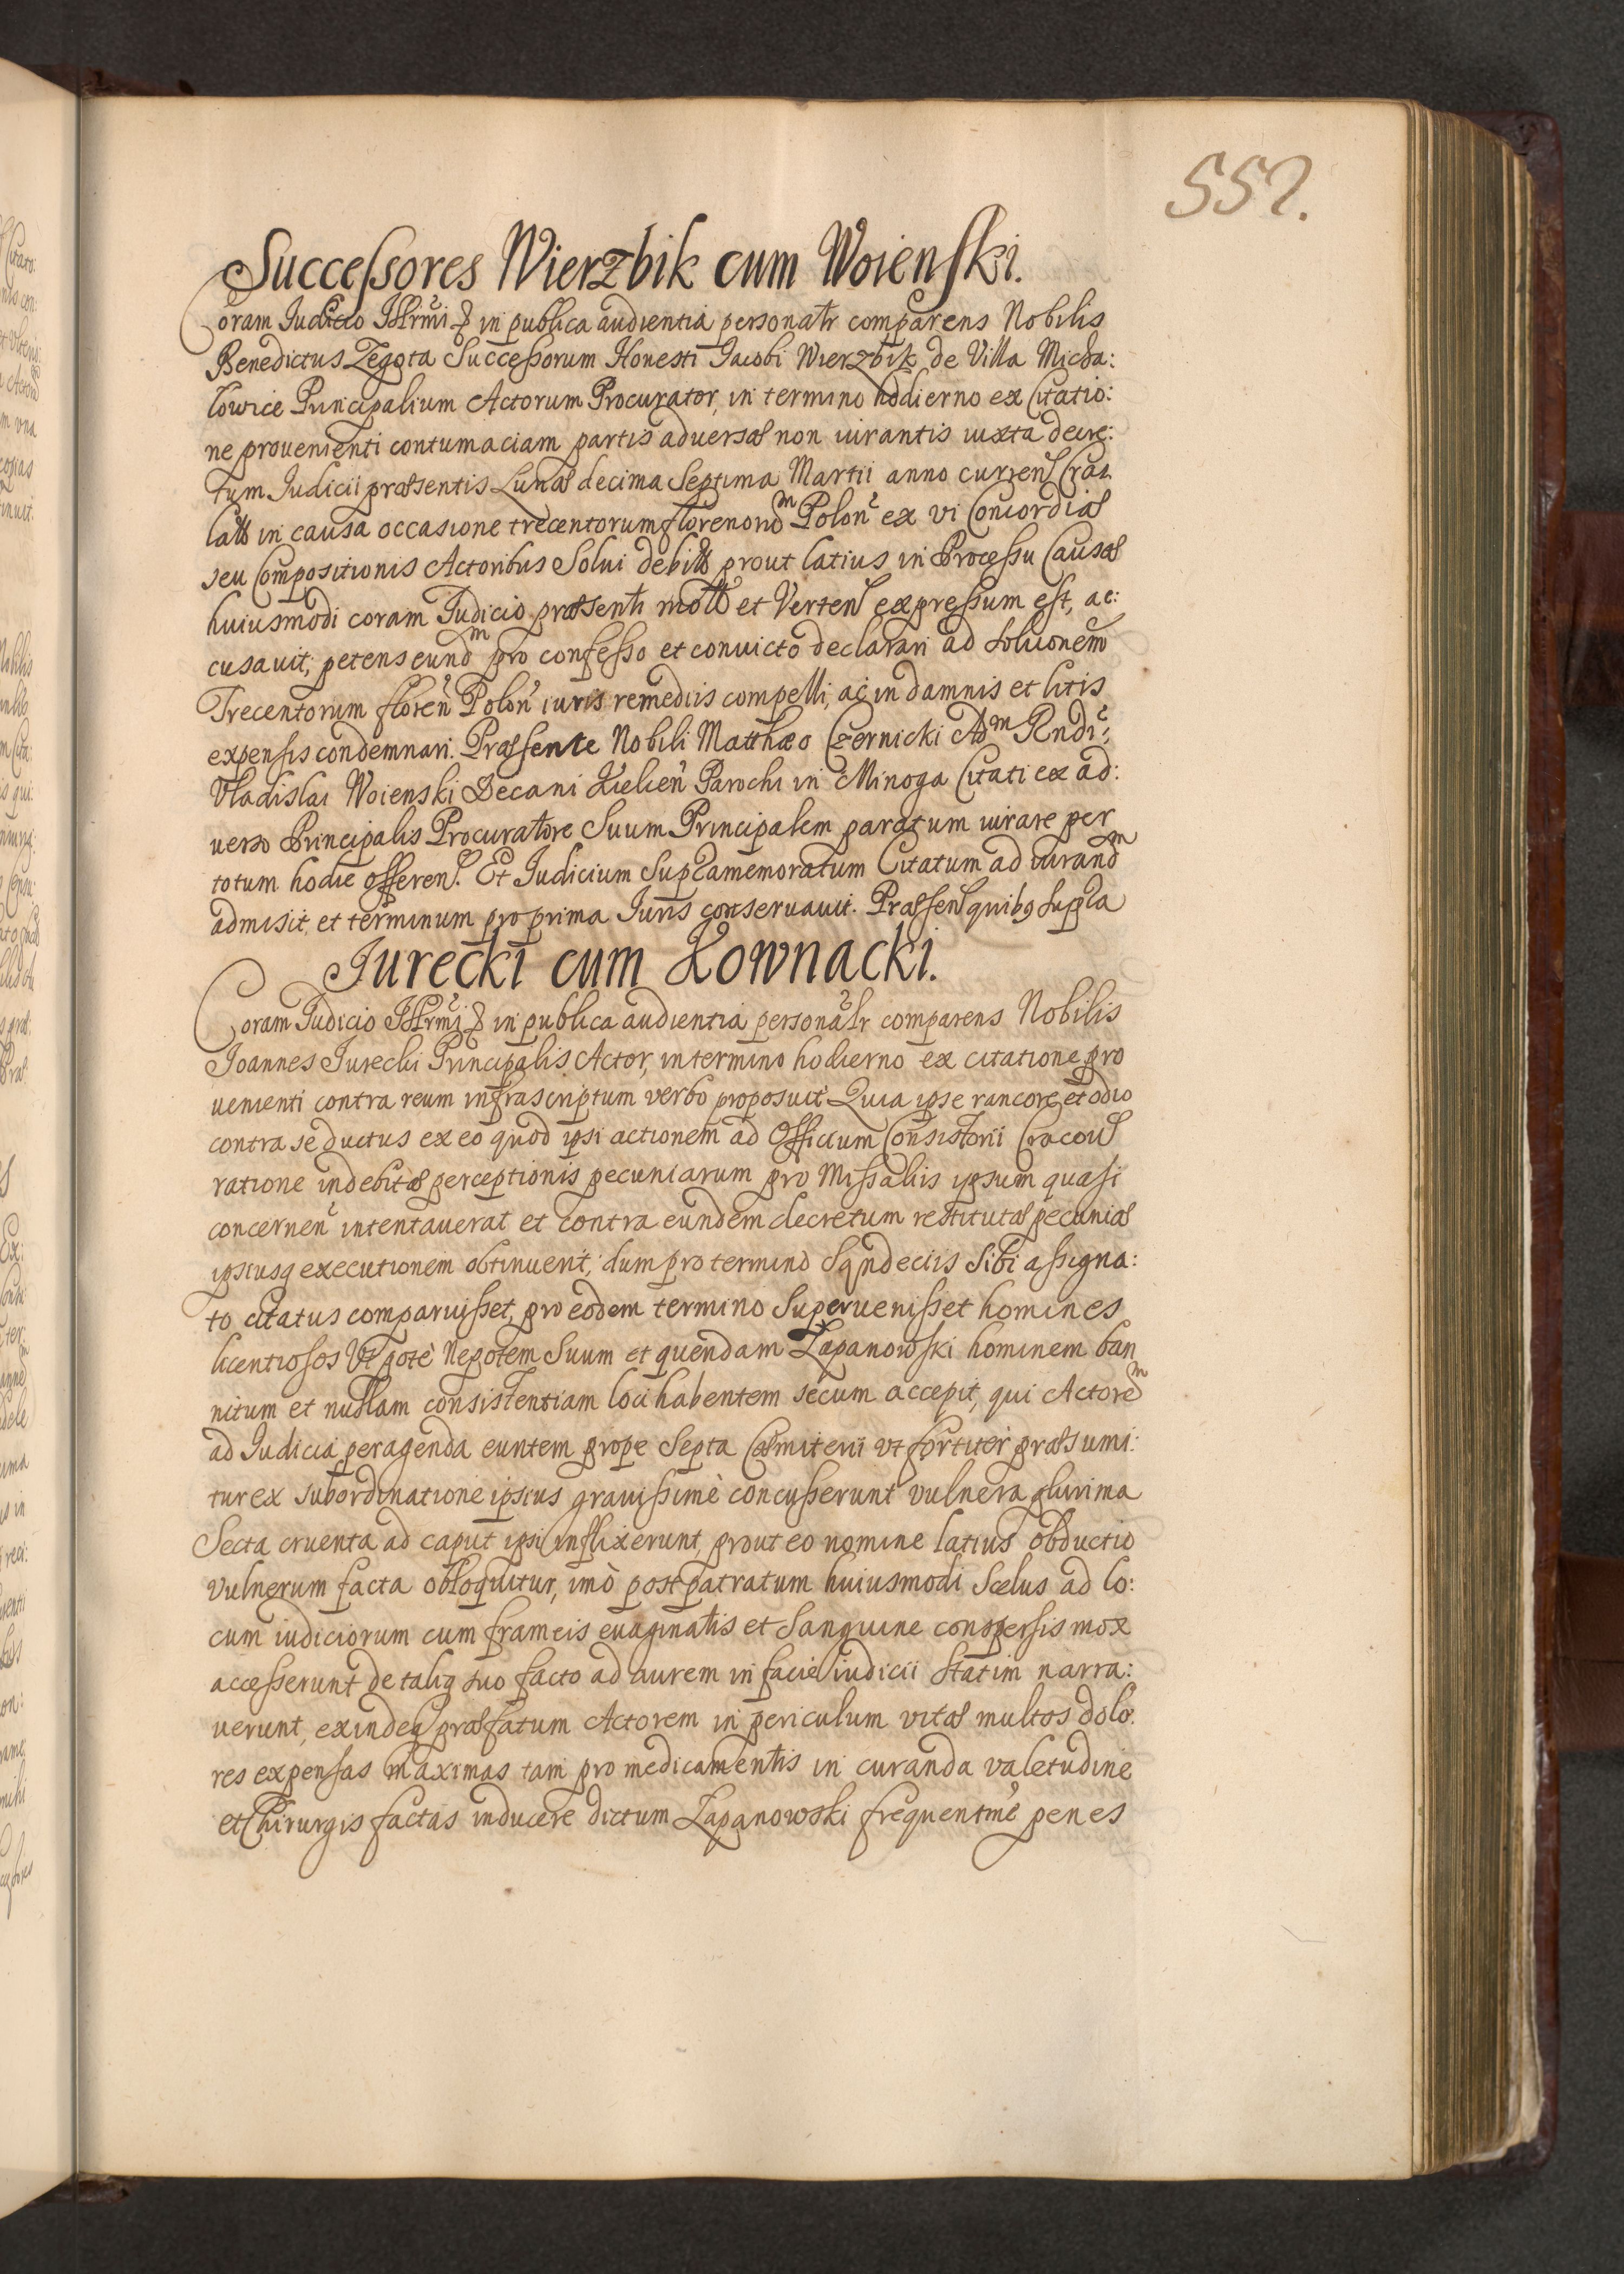 557.
Successores Wierzbik cum Woienski.
Coram Iudicio Illrmi in publica audientia personalr comparens Nobilis
Benedictus Zegota Successorum Honesti Jacobi Wierzbik de Villa Micha:
lowice Principalium Actorum Procurator, in termino hodierno ex Citatio:
ne provenienti contumaciam partis adversæ non iurantis iuxta decre:
tum Judicii præsentis Lunæ decima Septima Martii anno curren Crac.
latt in causa occasione trecentorum florenorum Polon ex vi Concordiæ
seu Compositionis Actoribus Solui debitt prout latius in Processu Causæ
huiusmodi coram Iudicio præsenti mott et Verten expressum est, ac:
cusauit; petens eundm pro confesso et convicto declarari ad soluonem
Trecentorum floren Polon iuris remediis compelli, ac in damnis et litis
expensis condemnari. Præsente Nobili Matthæo Czernicki Adm Rndi,
Vladislai Woienski Decani Kielien Parochi in Minoga Citati ex ad:
uerso Principalis Procuratore Suum Principalem paratum iurare per
totum hodie offeren. Et Iudicium Supramemoratum Citatum ad iurandm
admisit, et terminum pro prima Iuris conservauit. Præsen quibg supra
Jurecki cum Kownacki.
Coram Iudicio Illrmi in publica audientia personalr comparens Nobilis
Joannes Jurecki Principalis Actor, in termino hodierno ex citatione pro
uenienti contra reum infrascriptum verbo proposuit Quia ipse rancore et odio
contra se ductus ex eo quod ipsi actionem ad Officium Consistorii Cracou
ratione indebitæ perceptionis pecuniarum pro Missaliis ipsum quasi
concernen intentauerat et contra eundem decretum restitutæ pecuniæ
ipsiusq executionem obtinuerit; dum pro termino Synd eciis Sibi assigna:
to citatus comparuisset, pro eodem termino Superuenisset homines
licentiosos Vt pote Nepotem Suum et quendam Łapanowski hominem ban
nitum et nullam consistentiam loci habentem secum accepit, qui Actorem
ad Iudicia peragenda euntem prope Septa Cæmiterii vt fortiter præsumi:
tur ex subordinatione ipsius grauissimè concusserunt vulnera plurima
Secta cruenta ad caput ipsi inflixerunt, prout eo nomine latius obductio
vulnerum facta obloquitur, imò post patratum huiusmodi Scelus ad lo:
cum iudiciorum cum frameis euaginatis et Sanguine conspersis mox
accesserunt de taliq suo facto ad aurem in facie iudicii Statim narra:
uerunt, exindeq præfatum Actorem in periculum vitæ multos dolo:
res expensas maximas tam pro medicamentis in curanda valetudine
et Chirurgis factas inducere dictum Łapanowski frequentme penes